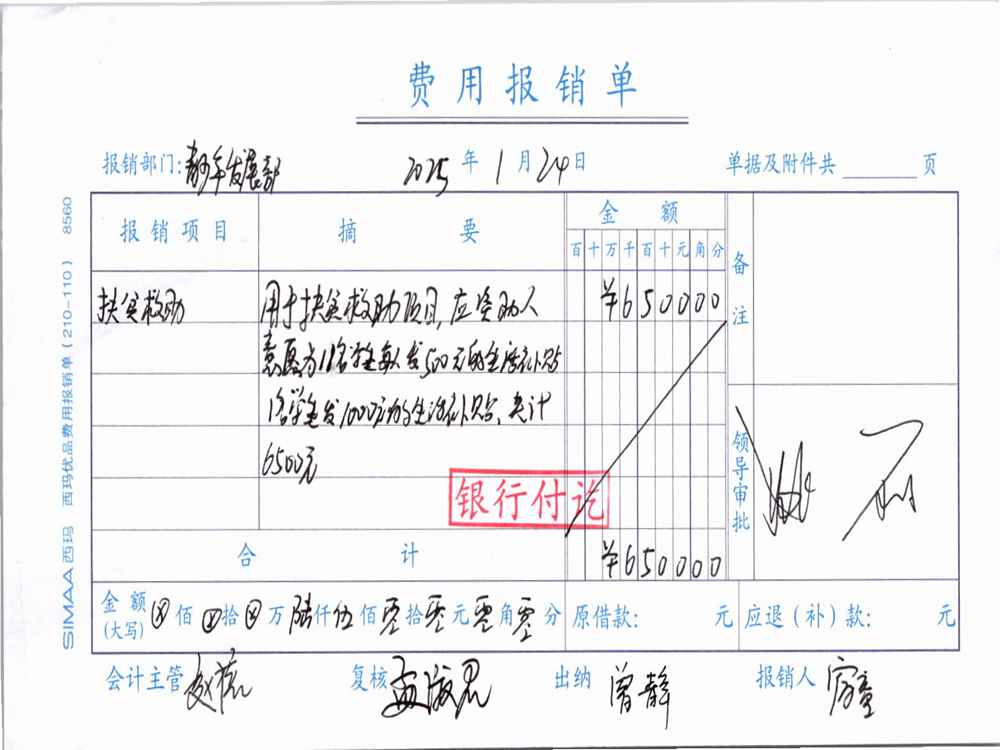 费用报销单
报销部门：青少年发展部 2025年1月24日 单据及附件共 页
报销项目 摘要 金额 备注
百十万千百十元角分
扶贫救助 用于扶贫救助项目，应资助人 ¥650000
意愿为11名学生每人发500元的生活补贴
1名学生发1000元的生活补贴、共计
6500元
银行付讫
领导审批
合计 ¥650000
金额(大写) ⊗佰⊗拾⊗万陆仟伍佰零拾零元零角零分 原借款： 元 应退（补）款： 元
会计主管 复核 出纳 曾静 报销人
SIMAA西玛 西玛优品费用报销单（210-110） 8560